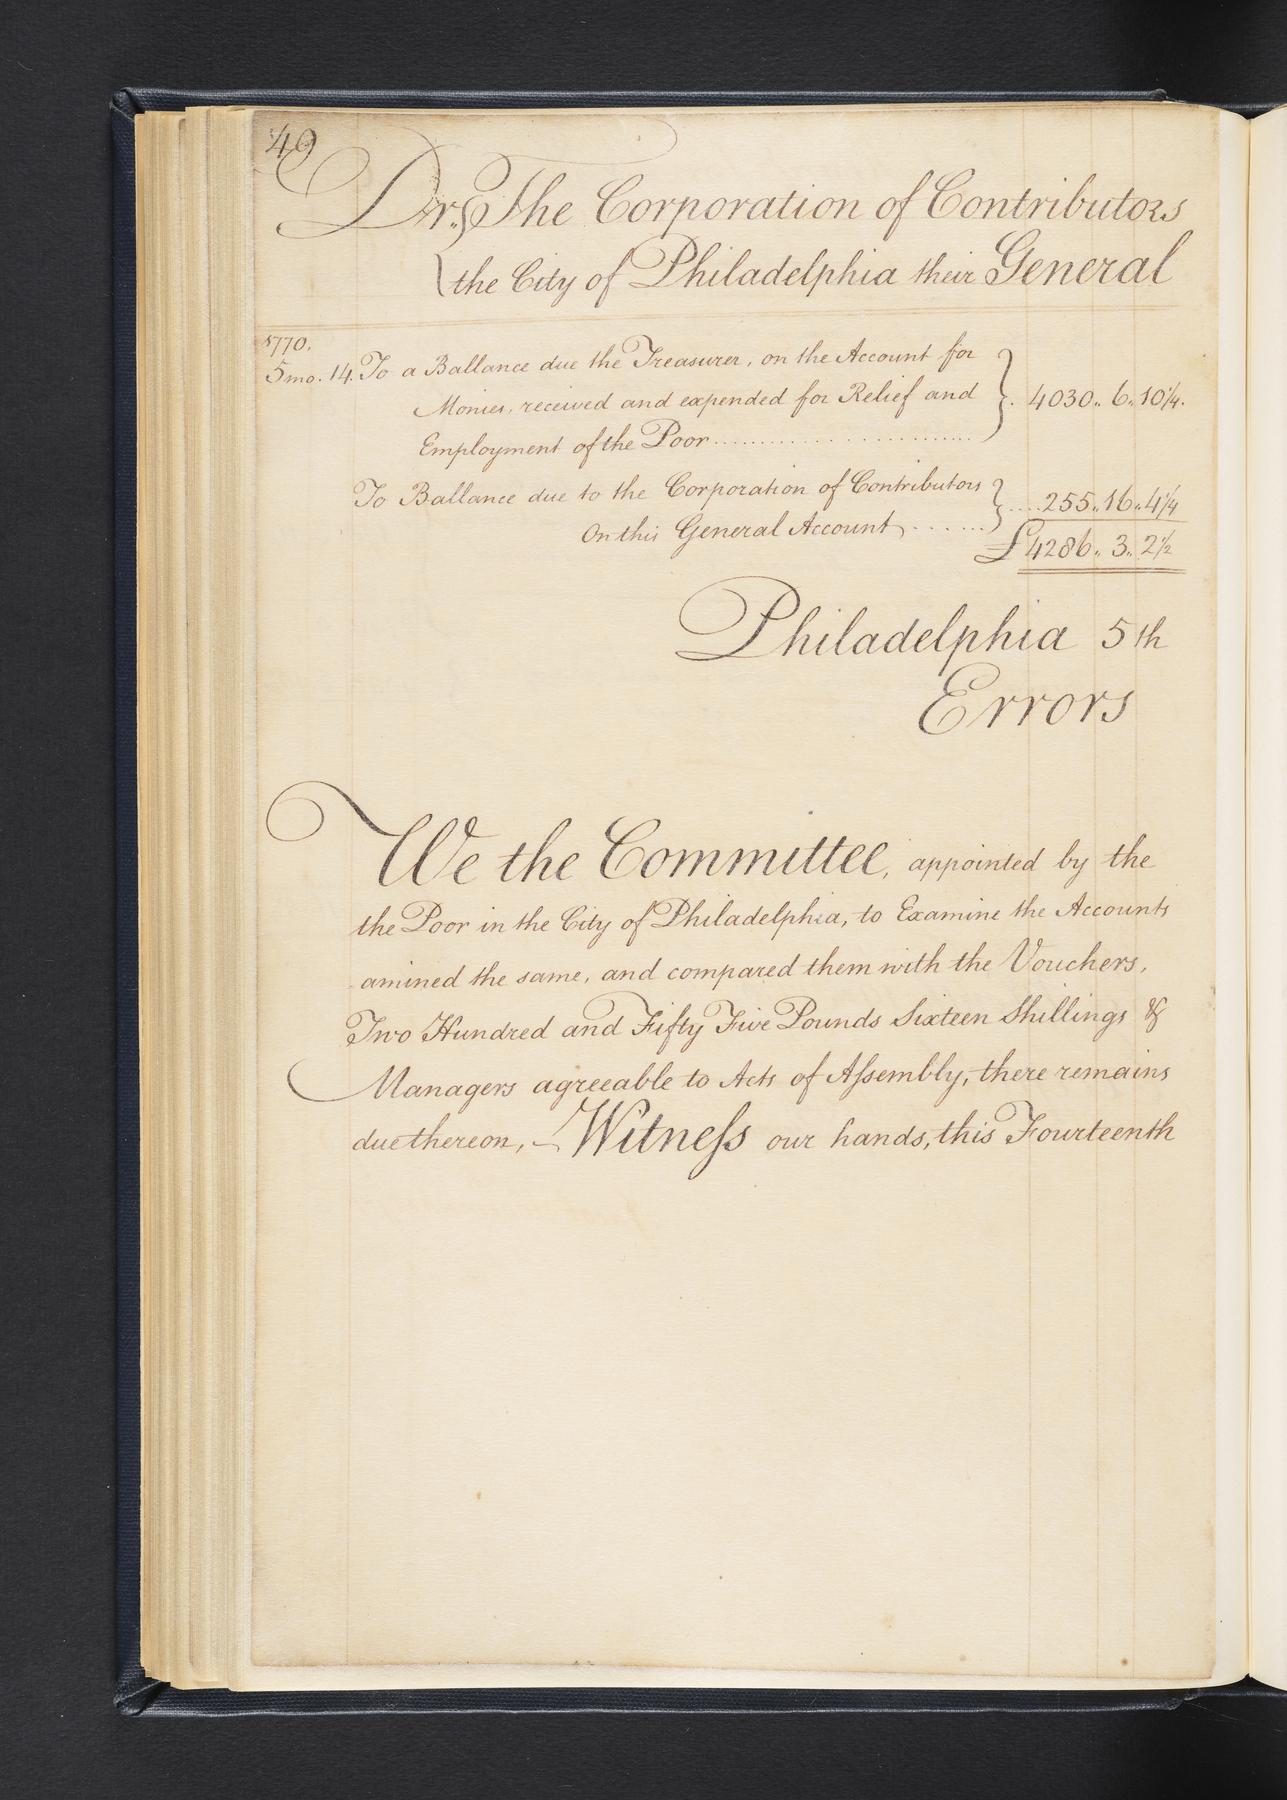 49
Dr. The Corporation of Contributors
the City of Philadelphia their General
1770.
5 mo. 14. To a Ballance due the Treasurer, on the Account for
Monies, received and expended for Relief and
4030 .. 6 .. 10 1/4.
Employment of the Poor
To Ballance due to the Corporation of Contributors
On this General Account
255 .. 16 .. 4 1/4
£ 4286 .. 3 .. 2 1/2
Philadelphia 5th
Errors
We the Committee, appointed by the
the Poor in the City of Philadelphia, to Examine the Accounts
amined the same, and compared them with the Vouchers,
Two Hundred and Fifty Five Pounds Sixteen Shillings &
Managers agreeable to Acts of Aſsembly, there remains
due thereon, — Witneſs our hands, this Fourteenth